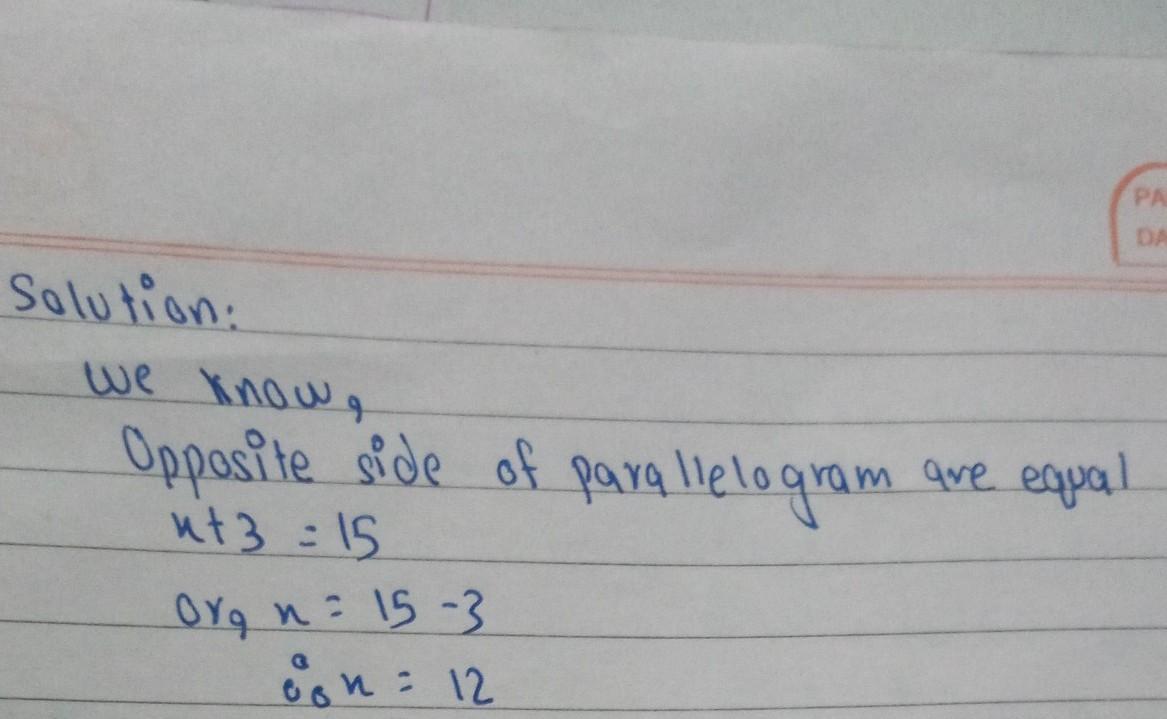 PA
DA
Solution:
we know,
Opposite side of parallelogram are equal
x+3 = 15
or, x = 15 -3
∴ x = 12